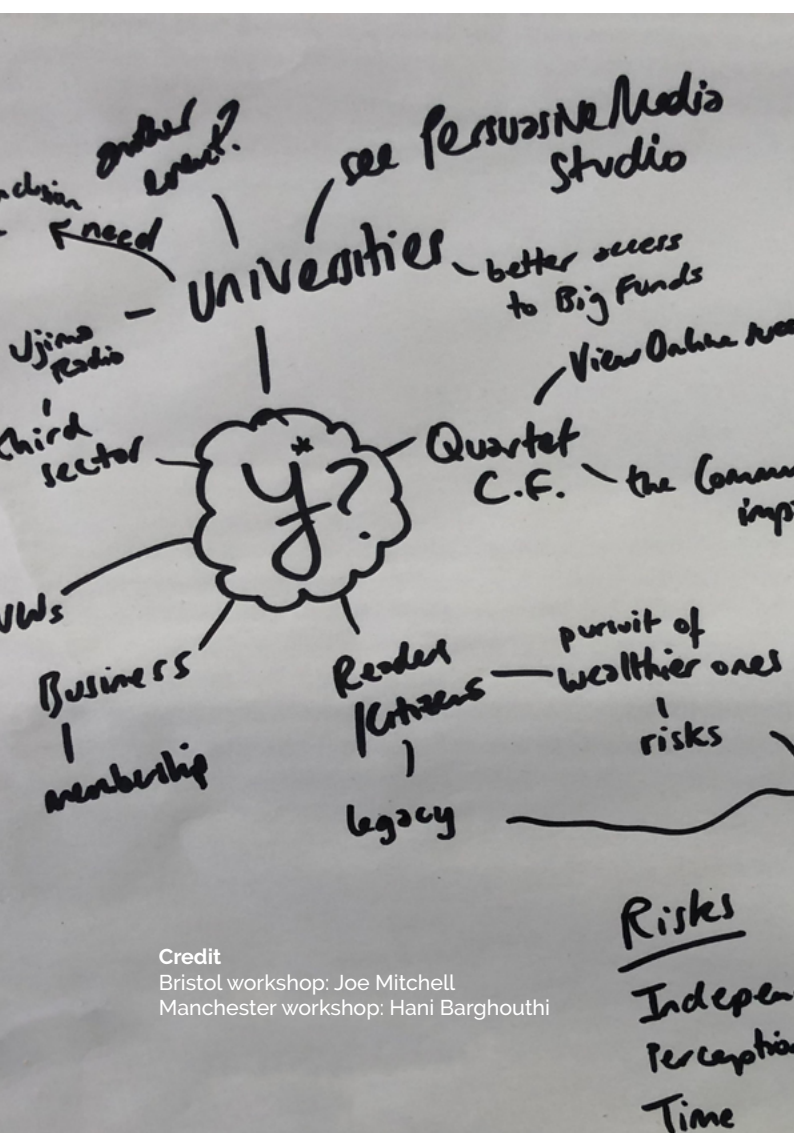 another
event?
see Persuasive Media
Studio
need
Universities
better access
to Big Funds
Ujima
Radio
View Online
third
sector
y*?
Quartet
C.F.
the
VWs
Business
membership
Readers
/Citizens
pursuit of
wealthier ones
risks
legacy
Risks
Perception
Time
Credit
Bristol workshop: Joe Mitchell
Manchester workshop: Hani Barghouthi